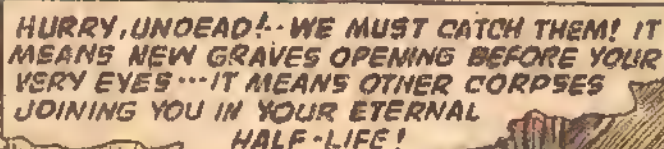 HURRY, UNDEAD!·· WE MUST CATCH THEM! IT
MEANS NEW GRAVES OPENING BEFORE YOUR
VERY EYES···IT MEANS OTHER CORPSES
JOINING YOU IN YOUR ETERNAL
HALF-LIFE!